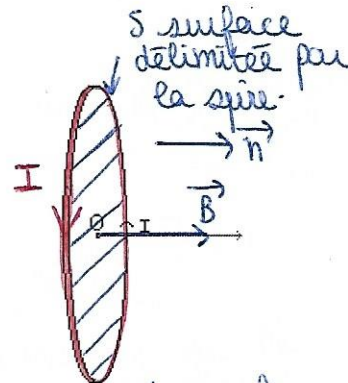 S surface
délimitée par
la spire.
n
I
B
O I